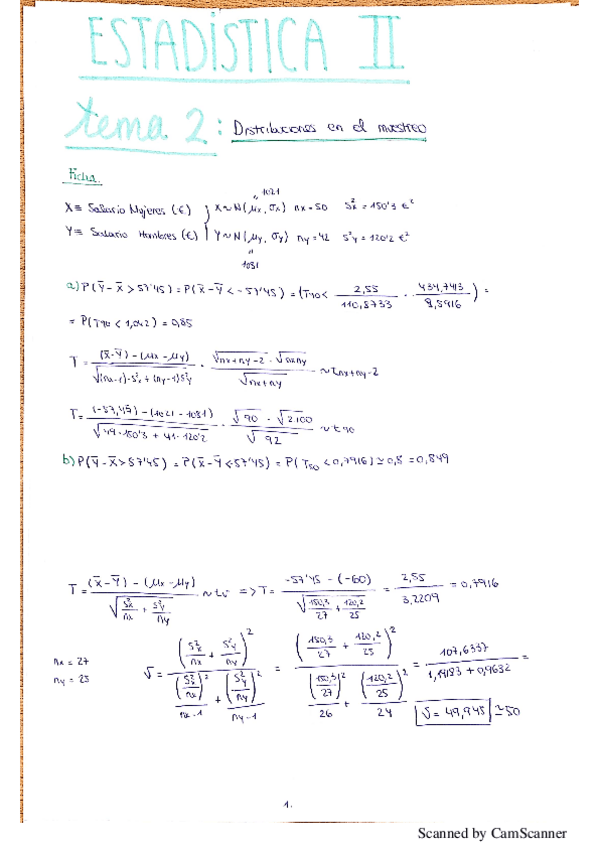 ESTADÍSTICA II
tema 2: Distribuciones en el muestreo
Ficha.
1021
X≡ Salario Mujeres (€) } X~N(μx, σx) nx=50 S²x = 150'3 €²
Y≡ Salario Hombres (€) } Y~N(μy, σy) ny=42 S²y = 120'2 €²
1081
a) P(Ȳ-X̄>57'45) = P(X̄-Ȳ<-57'45) = (T90< 2,55/110,8733 · 434,7413/9,5916) =
= P(T90 < 1,042) = 0,85
T = (X̄-Ȳ) - (μx - μy) / √(nx-1)·S²x + (ny-1)S²y · √nx+ny-2 · √nxny / √nx+ny ~ tnx+ny-2
T = (-57,45) - (1021 - 1081) / √49·150'3 + 41·120'2 · √90 · √2100 / √92 ~ t90
b) P(Ȳ-X̄>57'45) = P(X̄-Ȳ<57'45) = P(T50 < 0,7916) ≃ 0,8 = 0,849
T = (X̄-Ȳ) - (μx - μy) / √S²x/nx + S²y/ny ~ tv => T = -57'45 - (-60) / √150,3/27 + 120,2/25 = 2,55/3,2209 = 0,7916
nx = 27
ny = 25
V = (S²x/nx + S²y/ny)² / (S²x/nx)²/nx-1 + (S²y/ny)²/ny-1 = (150,3/27 + 120,2/25)² / (150,3/27)²/26 + (120,2/25)²/24 = 107,6337 / 1,19183 + 0,9632 =
V = 49,945 ≃ 50
1.
Scanned by CamScanner